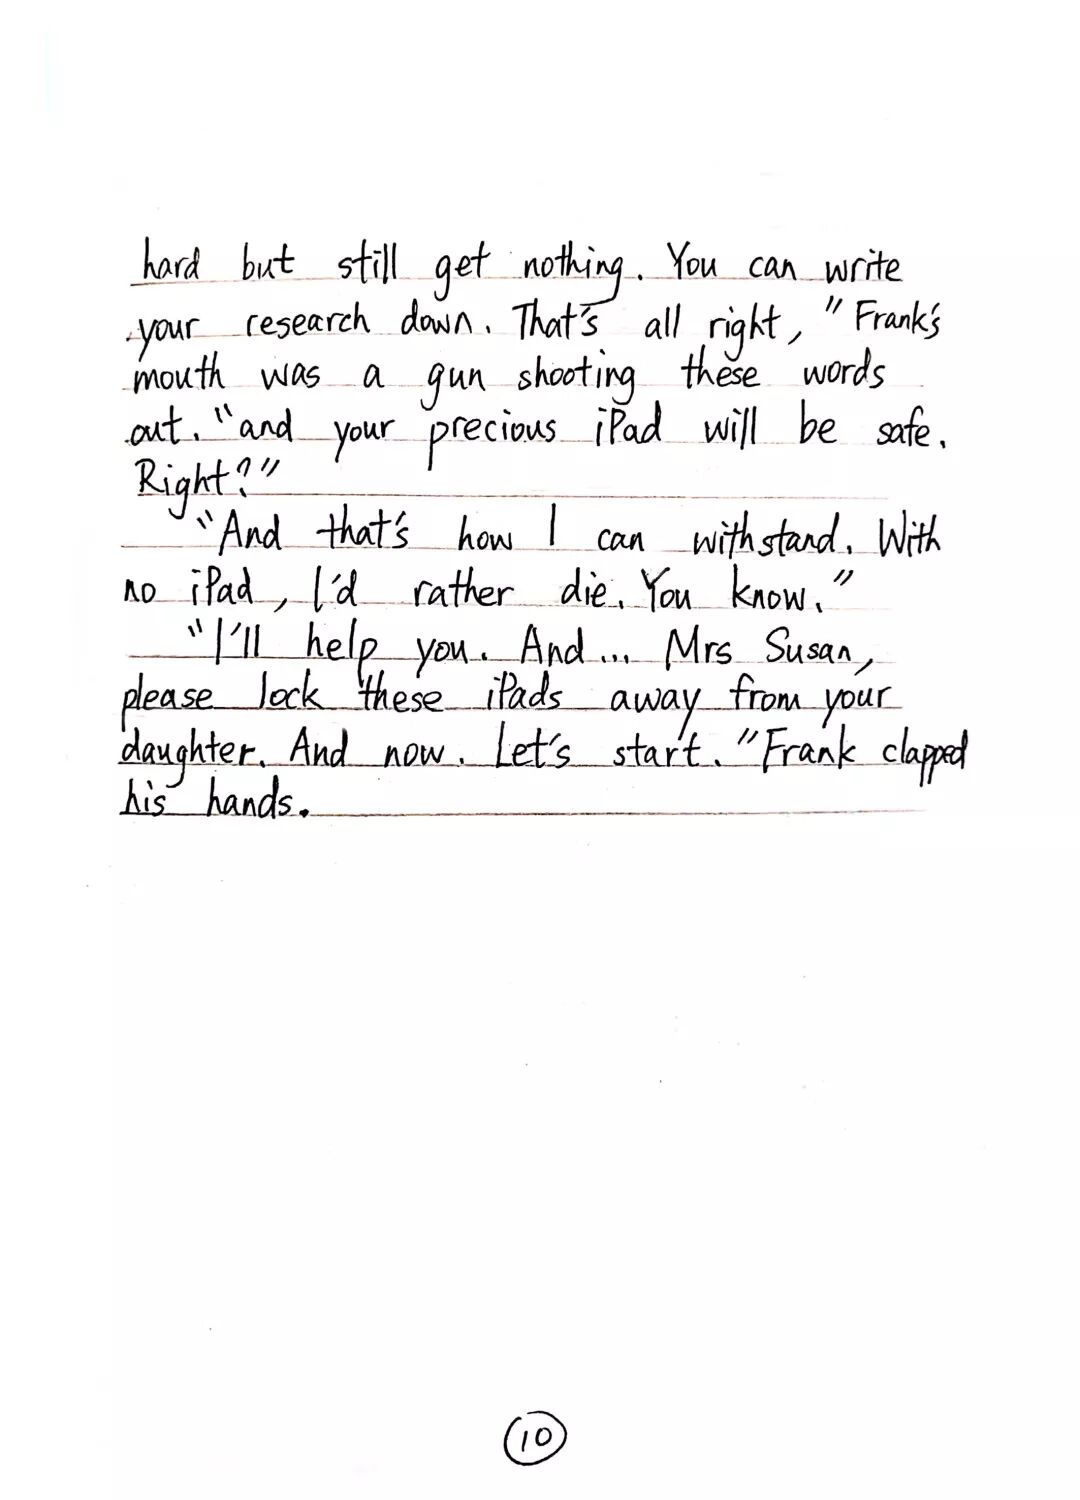 hard but still get nothing. You can write
your research down. That's all right," Frank's
mouth was a gun shooting these words
out. "and your precious iPad will be safe.
Right?"
"And that's how I can withstand. With
no iPad, I'd rather die. You know."
"I'll help you. And ... Mrs Susan,
please lock these iPads away from your
daughter. And now. Let's start. "Frank clapped
his hands.
10